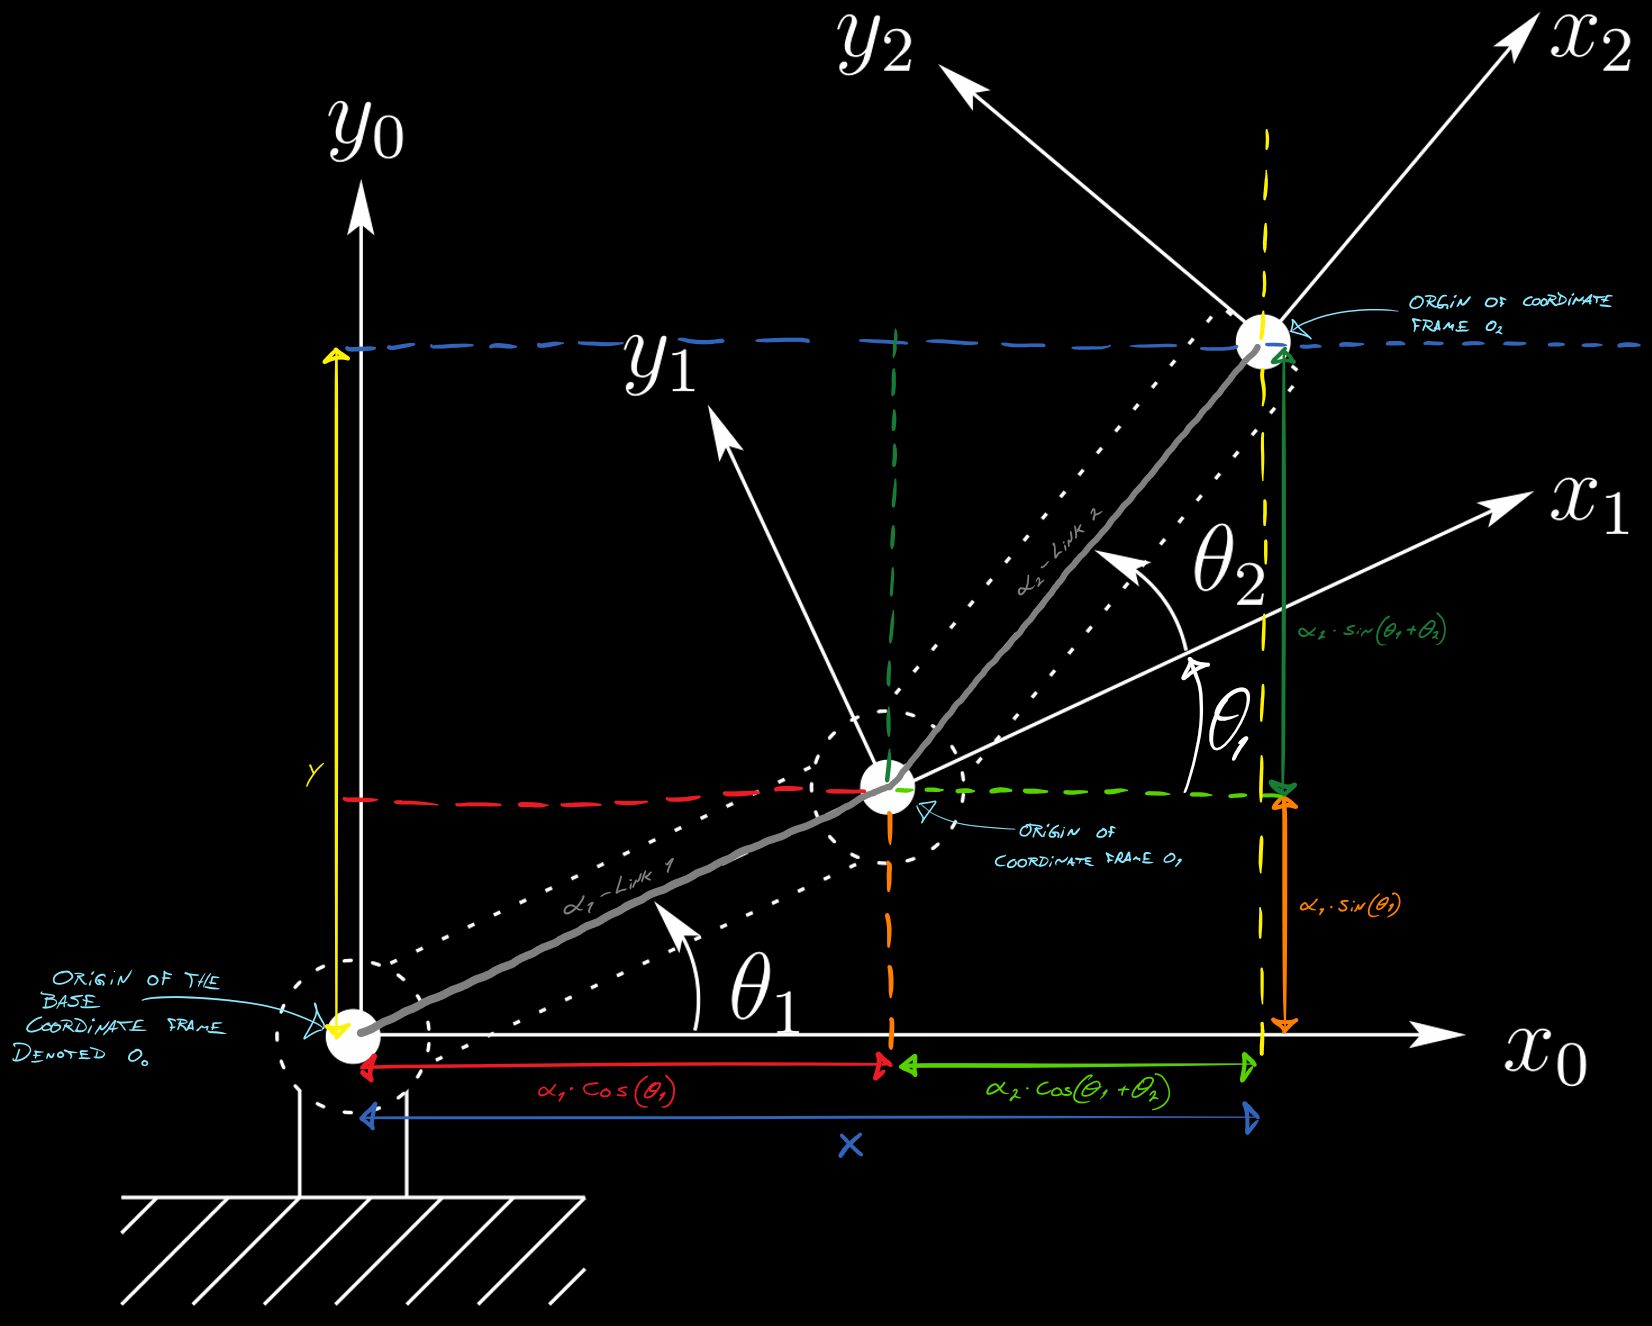 y₂
x₂
y₀
ORGIN OF COORDINATE
FRAME O₂
y₁
x₁
α₂ - LINK 2
θ₂
α₂ · sin(θ₁+θ₂)
θ₁
Y
ORIGIN OF
COORDINATE FRAME O₁
α₁ - LINK 1
α₁ · sin(θ₁)
ORIGIN OF THE
BASE
COORDINATE FRAME
DENOTED O₀
θ₁
x₀
α₁ · cos(θ₁)
α₂ · cos(θ₁ + θ₂)
X